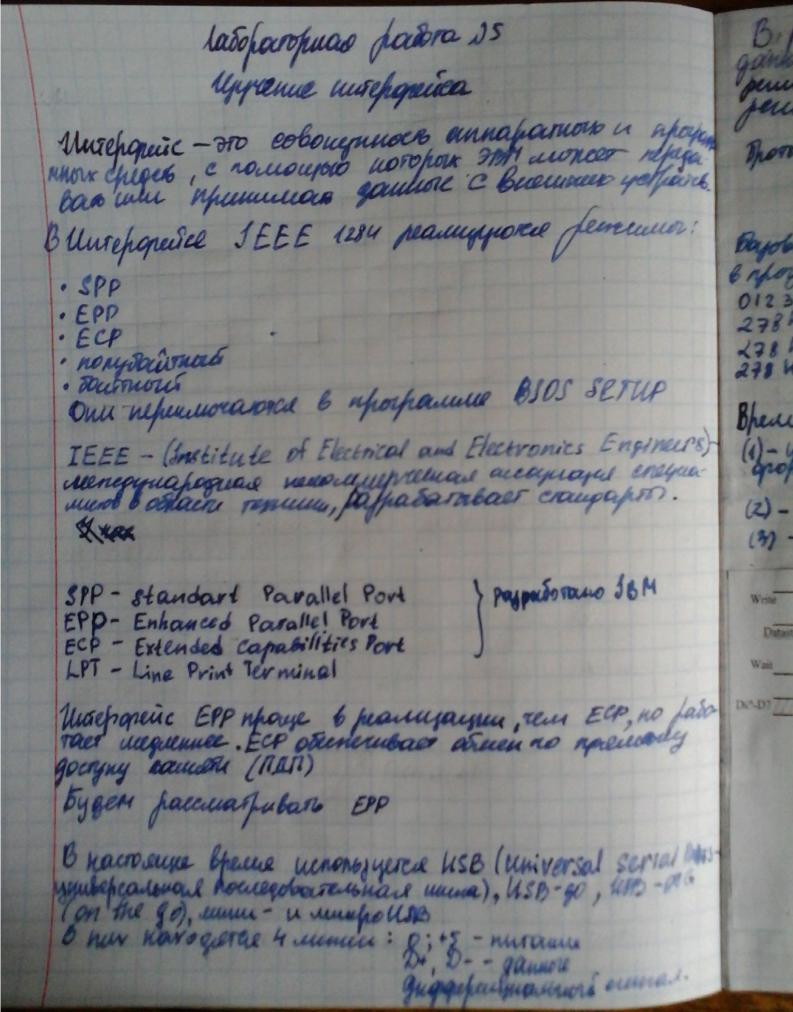 Лабораторная работа №5
Изучение интерфейса
Интерфейс – это совокупность аппаратных и програм
мных средств, с помощью которых ЭВМ может переда-
вать или принимать данные с внешних устройств.
В Интерфейсе IEEE 1284 реализуются режимы:
• SPP
• EPP
• ECP
• полубайтный
• байтный
Они переключаются в программе BIOS SETUP
IEEE – (Institute of Electrical and Electronics Engineers) –
международная некоммерческая ассоциация специа-
листов в области техники, разрабатывает стандарты.
SPP – Standart Parallel Port
EPP – Enhanced Parallel Port
ECP – Extended Capabilities Port
разработано IBM
LPT – Line Print Terminal
Интерфейс EPP проще в реализации, чем ECP, но рабо-
тает медленнее. ECP обеспечивает обмен по прямому
доступу памяти (ПДП)
Будем рассматривать EPP
В настоящие время используется USB (Universal Serial Bus –
универсальная последовательная шина), USB-go, USB-OTG
(on the go), мини- и микроUSB
В них находятся 4 линии: 0; +5 – питание
D+, D- – данные
Дифференциальный сигнал.
В
Базов
в прог
0123
278
278
278
Време
(1) –
(2) –
(3) –
Write
Datast
Wait
D0-D7